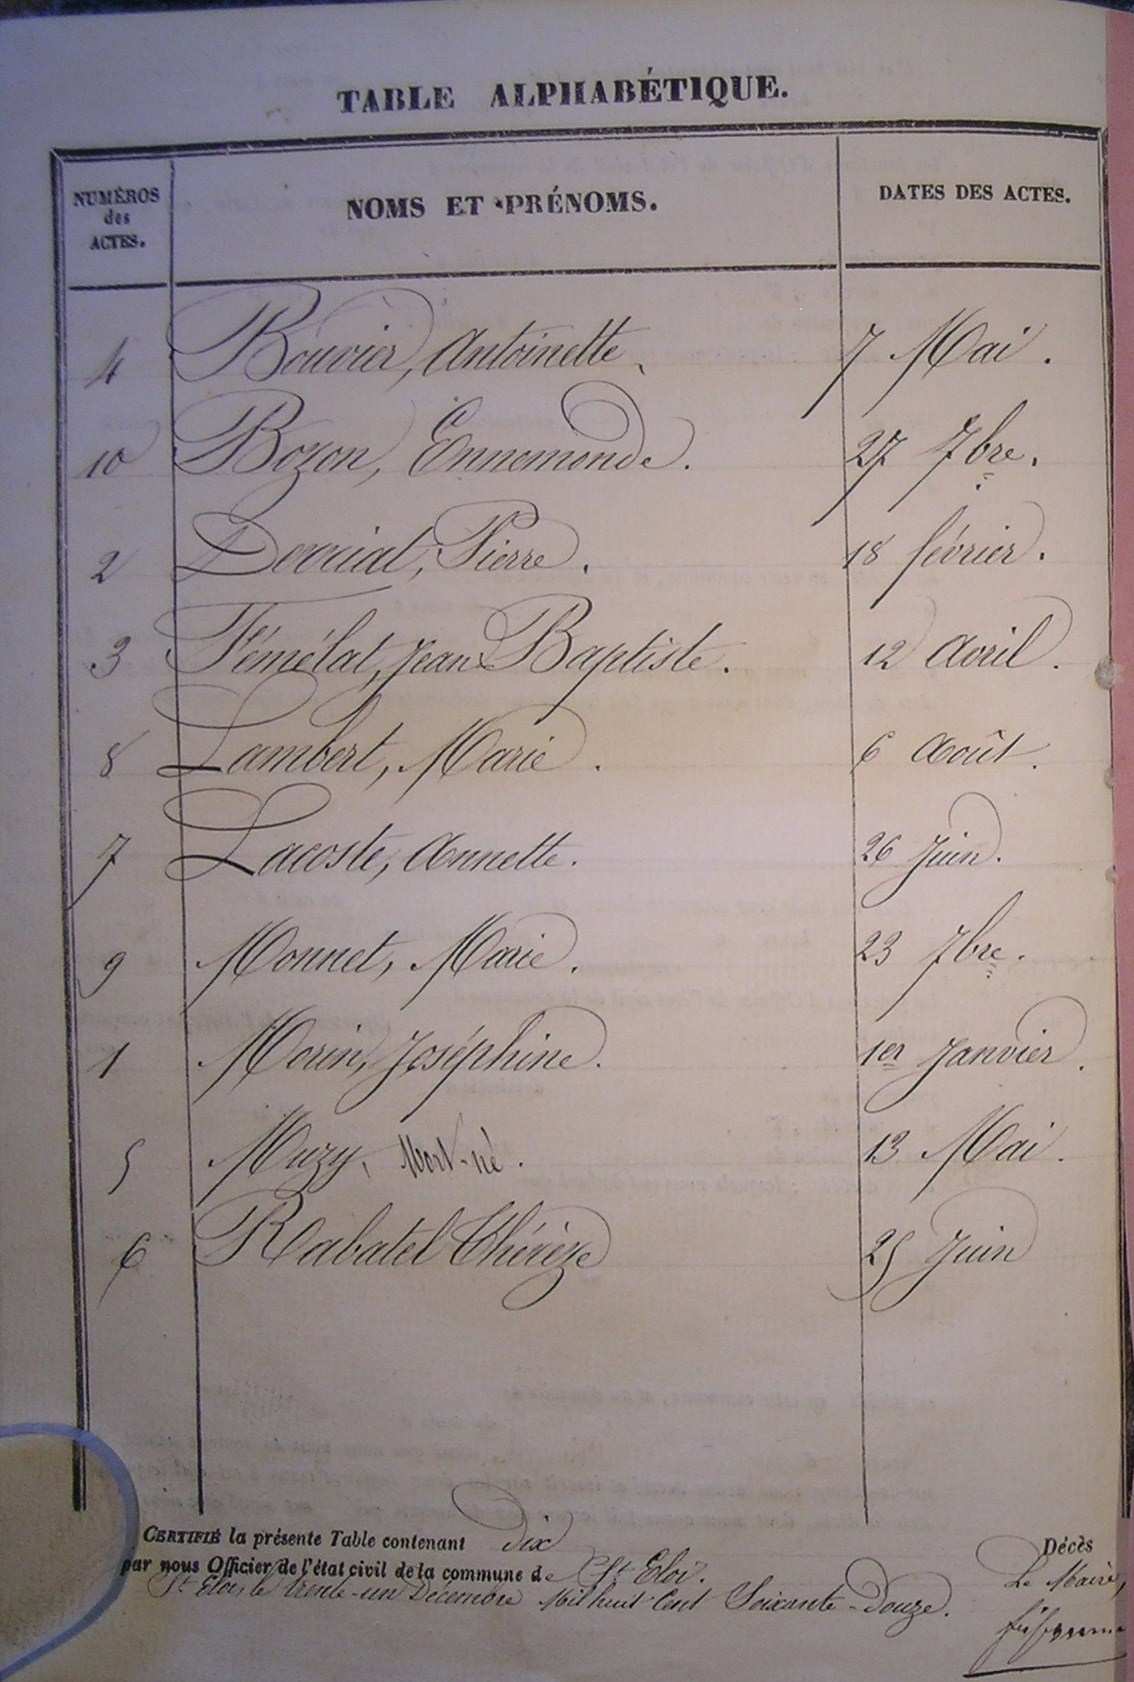 TABLE ALPHABÉTIQUE.
NUMÉROS des ACTES. NOMS ET PRÉNOMS. DATES DES ACTES.
4 Bouvier, Antoinette. 7 Mai.
10 Bozon, Ennemonde. 27 7bre.
2 Pierre. 18 février.
3 Fémélat, Jean Baptiste. 12 Avril.
8 Lambert, Marie. 6 Août.
7 Lacoste, Annette. 26 Juin.
9 Monnet, Marie. 23 7bre.
1 Morin, Joséphine. 1er Janvier.
5 Muzy, Mort-né. 13 Mai.
6 Rabatel Thérèze 25 Juin
CERTIFIÉ la présente Table contenant dix Décès
par nous Officier de l'état civil de la commune de St Eloi.
St Eloi, le trente-un Décembre Mil huit Cent Soixante-Douze.
Le Maire,